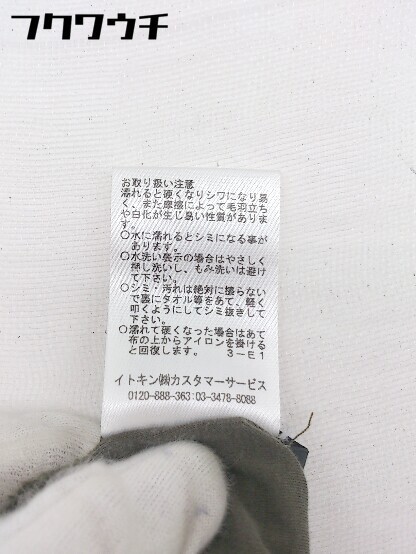 フクワウチ
お取り扱い注意
濡れると硬くなりシワになり易
く、また摩擦によって毛羽立ち
や白化が生じ易い性質がありま
す。
○水に濡れるとシミになる事が
あります。
○水洗い表示の場合はやさしく
押し洗いし、もみ洗いは避け
て下さい。
○シミ・汚れは絶対に擦らない
で裏にタオル等をあて、軽く
叩くようにしてシミ抜きして
下さい。
○濡れて硬くなった場合はあて
布の上からアイロンを掛ける
と回復します。 3-E1
イトキン㈱カスタマーサービス
0120-888-363:03-3478-8088